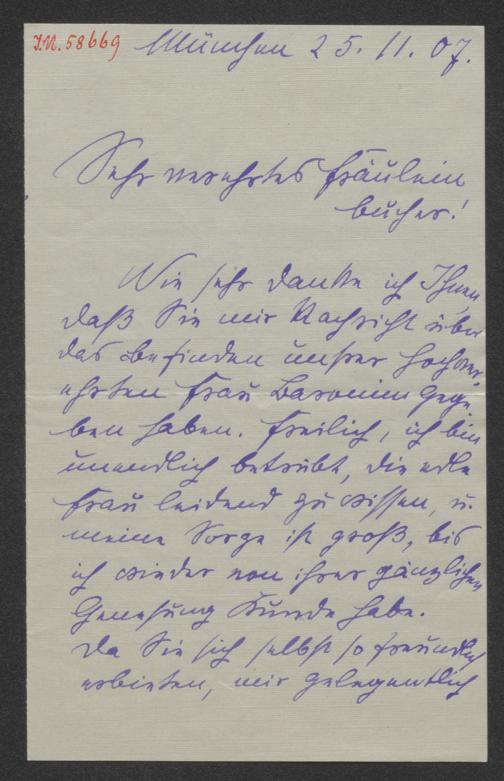 I.N. 58669 München 25. 11. 07.
Sehr verehrtes Fräulein
Bucher!
Wie sehr danke ich Ihnen
daß Sie mir Nachricht über
das Befinden unsrer hochver-
ehrten Frau Baronin gege-
ben haben. Freilich, ich bin
unendlich betrübt, die edle
Frau leidend zu wissen, u.
meine Sorge ist groß, bis
ich wieder von ihrer gänzlichen
Genesung Kunde habe.
Da Sie sich selbst so freundlich
erbieten, mir gelegentlich